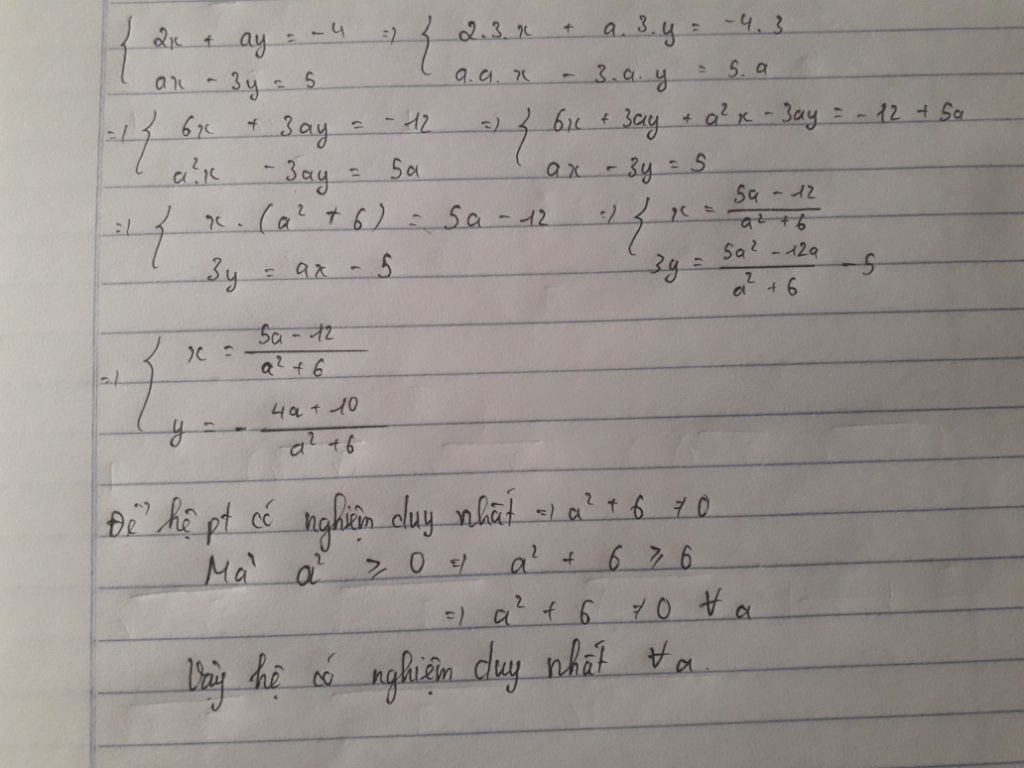 { 2x + ay = -4 => { 2.3.x + a.3.y = -4.3
ax - 3y = 5 a.a.x - 3.a.y = 5.a
=> { 6x + 3ay = -12 => { 6x + 3ay + a²x - 3ay = -12 + 5a
a².x - 3ay = 5a ax - 3y = 5
=> { x . (a² + 6) = 5a - 12 => { x = (5a - 12)/(a² + 6)
3y = ax - 5 3y = (5a² - 12a)/(a² + 6) - 5
=> { x = (5a - 12)/(a² + 6)
y = - (4a + 10)/(a² + 6)
Để hệ pt có nghiệm duy nhất => a² + 6 ≠ 0
Mà a² ≥ 0 => a² + 6 ≥ 6
=> a² + 6 ≠ 0 ∀ a
Vậy hệ có nghiệm duy nhất ∀ a.